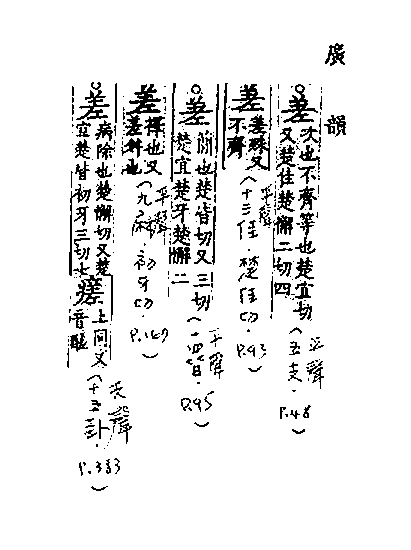 廣韻
差次也不齊等也楚宜切
又楚佳楚懈二切四
(平聲五支.P.48)
差差殊又
不齊
(平聲十三佳.楚佳切.P.93)
差簡也楚皆切又
楚宜楚牙楚懈二
三切
(平聲十四皆.P.95)
差擇也又
差舛也
(平聲九麻.初牙切.P.169)
差病除也楚懈切又楚
宜楚皆初牙三切七
瘥上同又
音醝
(去聲十五卦.P.383)